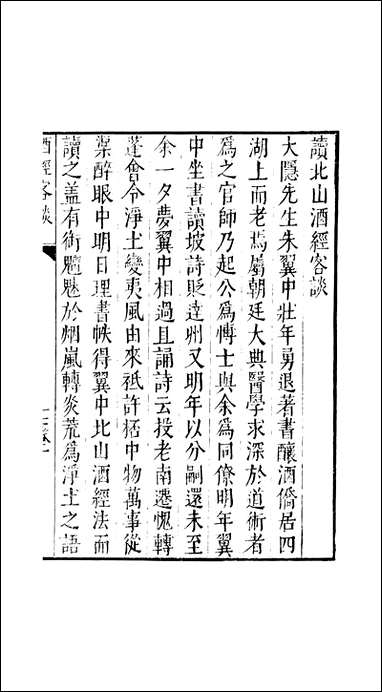 讀北山酒經客談
大隱先生朱翼中壯年勇退著書釀酒僑居西
湖上而老焉屬朝廷大興醫學求深於道術者
爲之官師乃起公爲博士與余爲同僚明年翼
中坐書讀坡詩貶達州又明年以宮祠還未至
余一夕夢翼中相過且誦詩云投老南遷愧轉
蓬會令淨土變夷風由來秪許杯中物萬事從
渠醉眼中明日理書帙得翼中北山酒經法而
讀之盖有御魑魅於烟嵐轉炎荒爲淨土之語
酒經客談